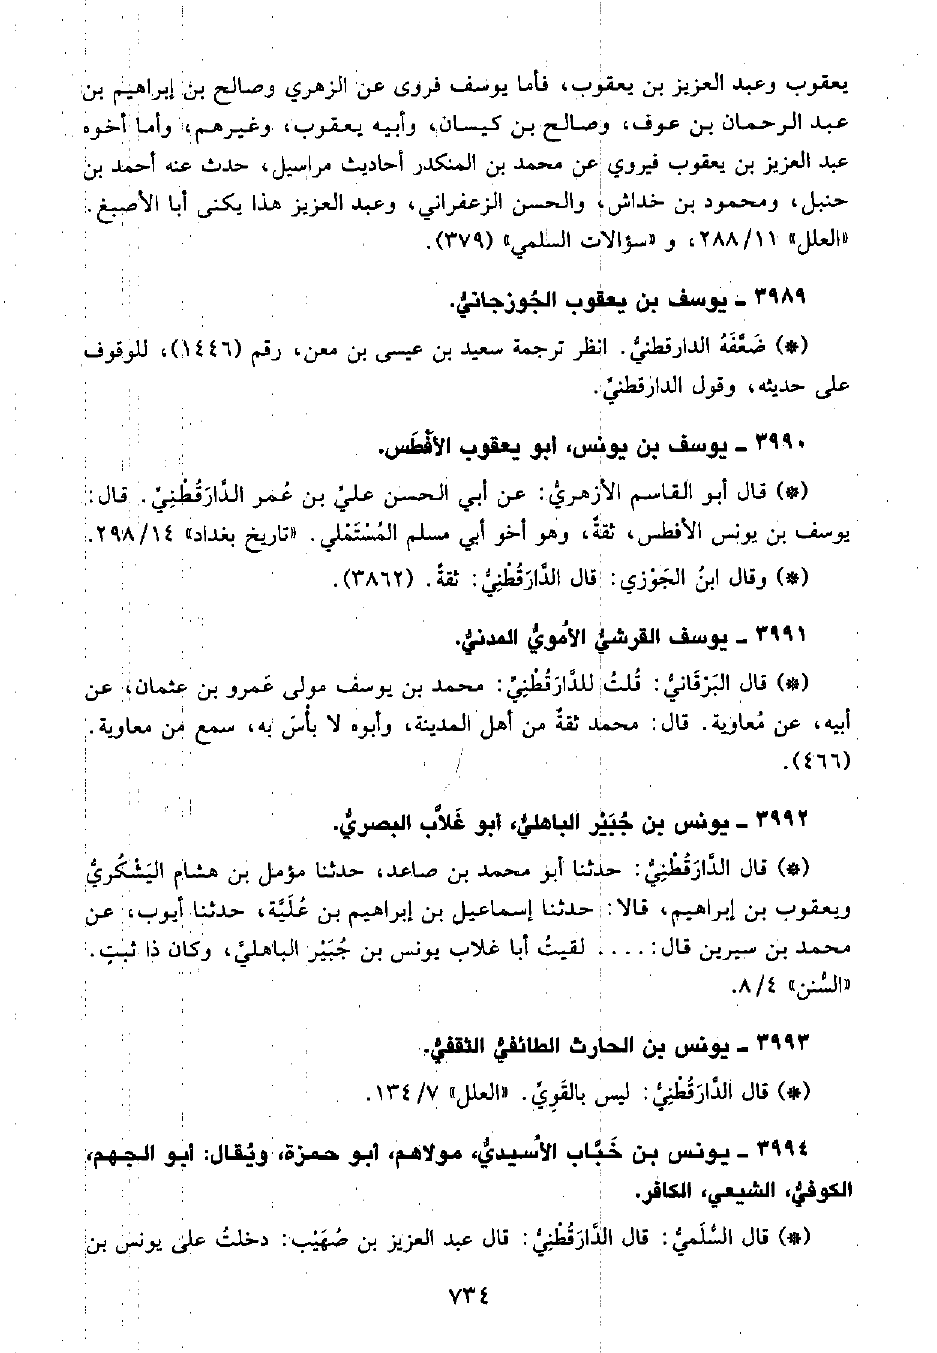 يعقوب وعبد العزيز بن يعقوب، فأما يوسف فروى عن الزهري وصالح بن إبراهيم بن
عبد الرحمان بن عوف، وصالح بن كيسان، وأبيه يعقوب، وغيرهم، وأما أخوه
عبد العزيز بن يعقوب فيروي عن محمد بن المنكدر أحاديث مراسيل، حدث عنه أحمد بن
حنبل، ومحمود بن خداش، والحسن الزعفراني، وعبد العزيز هذا يكنى أبا الأصبغ.
«العلل» ٢٨٨/١١، و «سؤالات السلمي» (٣٧٩).
٣٩٨٩ ـ يوسف بن يعقوب الجُوزجانيُّ.
(*) ضَعَّفَهُ الدارقطنيُّ. انظر ترجمة سعيد بن عيسى بن معن، رقم (١٤٤٦)، للوقوف
على حديثه، وقول الدارقطنيّ.
٣٩٩٠ ـ يوسف بن يونس، ابو يعقوب الأَفْطَس.
(*) قال أبو القاسم الأزهريُّ: عن أبي الحسن عليِّ بن عُمر الدَّارَقُطْنِيِّ. قال:
يوسف بن يونس الأفطس، ثقةٌ، وهو أخو أبي مسلم المُسْتَمْلي. «تاريخ بغداد» ٢٩٨/١٤.
(*) وقال ابنُ الجَوْزي: قال الدَّارَقُطْنِيُّ: ثقةٌ. (٣٨٦٢).
٣٩٩١ ـ يوسف القرشيُّ الأمويُّ المدنيُّ.
(*) قال البَرْقَانيُّ: قُلتُ للدَّارَقُطْنِيِّ: محمد بن يوسف مولى عَمرو بن عثمان، عن
أبيه، عن مُعاوية. قال: محمد ثقةٌ من أهل المدينة، وأبوه لا بأْسَ به، سمع من معاوية.
(٤٦٦).
٣٩٩٢ ـ يونس بن جُبَيْر الباهليُّ، ابو غَلاَّب البصريُّ.
(*) قال الدَّارَقُطْنِيُّ: حدثنا أبو محمد بن صاعد، حدثنا مؤمل بن هشام اليَشْكُريُّ
ويعقوب بن إبراهيم، قالا: حدثنا إسماعيل بن إبراهيم بن عُلَيَّة، حدثنا أيوب، عن
محمد بن سيرين قال: .... لقيتُ أبا غلاب يونس بن جُبَيْر الباهليَّ، وكان ذا ثبتٍ.
«السُّنن» ٨/٤.
٣٩٩٣ ـ يونس بن الحارث الطائفيُّ الثقفيُّ.
(*) قال الدَّارَقُطْنِيُّ: ليس بالقَويِّ. «العلل» ١٣٤/٧.
٣٩٩٤ ـ يونس بن خَبَّاب الأُسيديُّ، مولاهم، ابو حمزة، ويُقال: ابو الجهم،
الكوفيُّ، الشيعي، الكافر.
(*) قال السُّلَميُّ: قال الدَّارَقُطْنِيُّ: قال عبد العزيز بن صُهَيْب: دخلتُ على يونس بن
٧٣٤